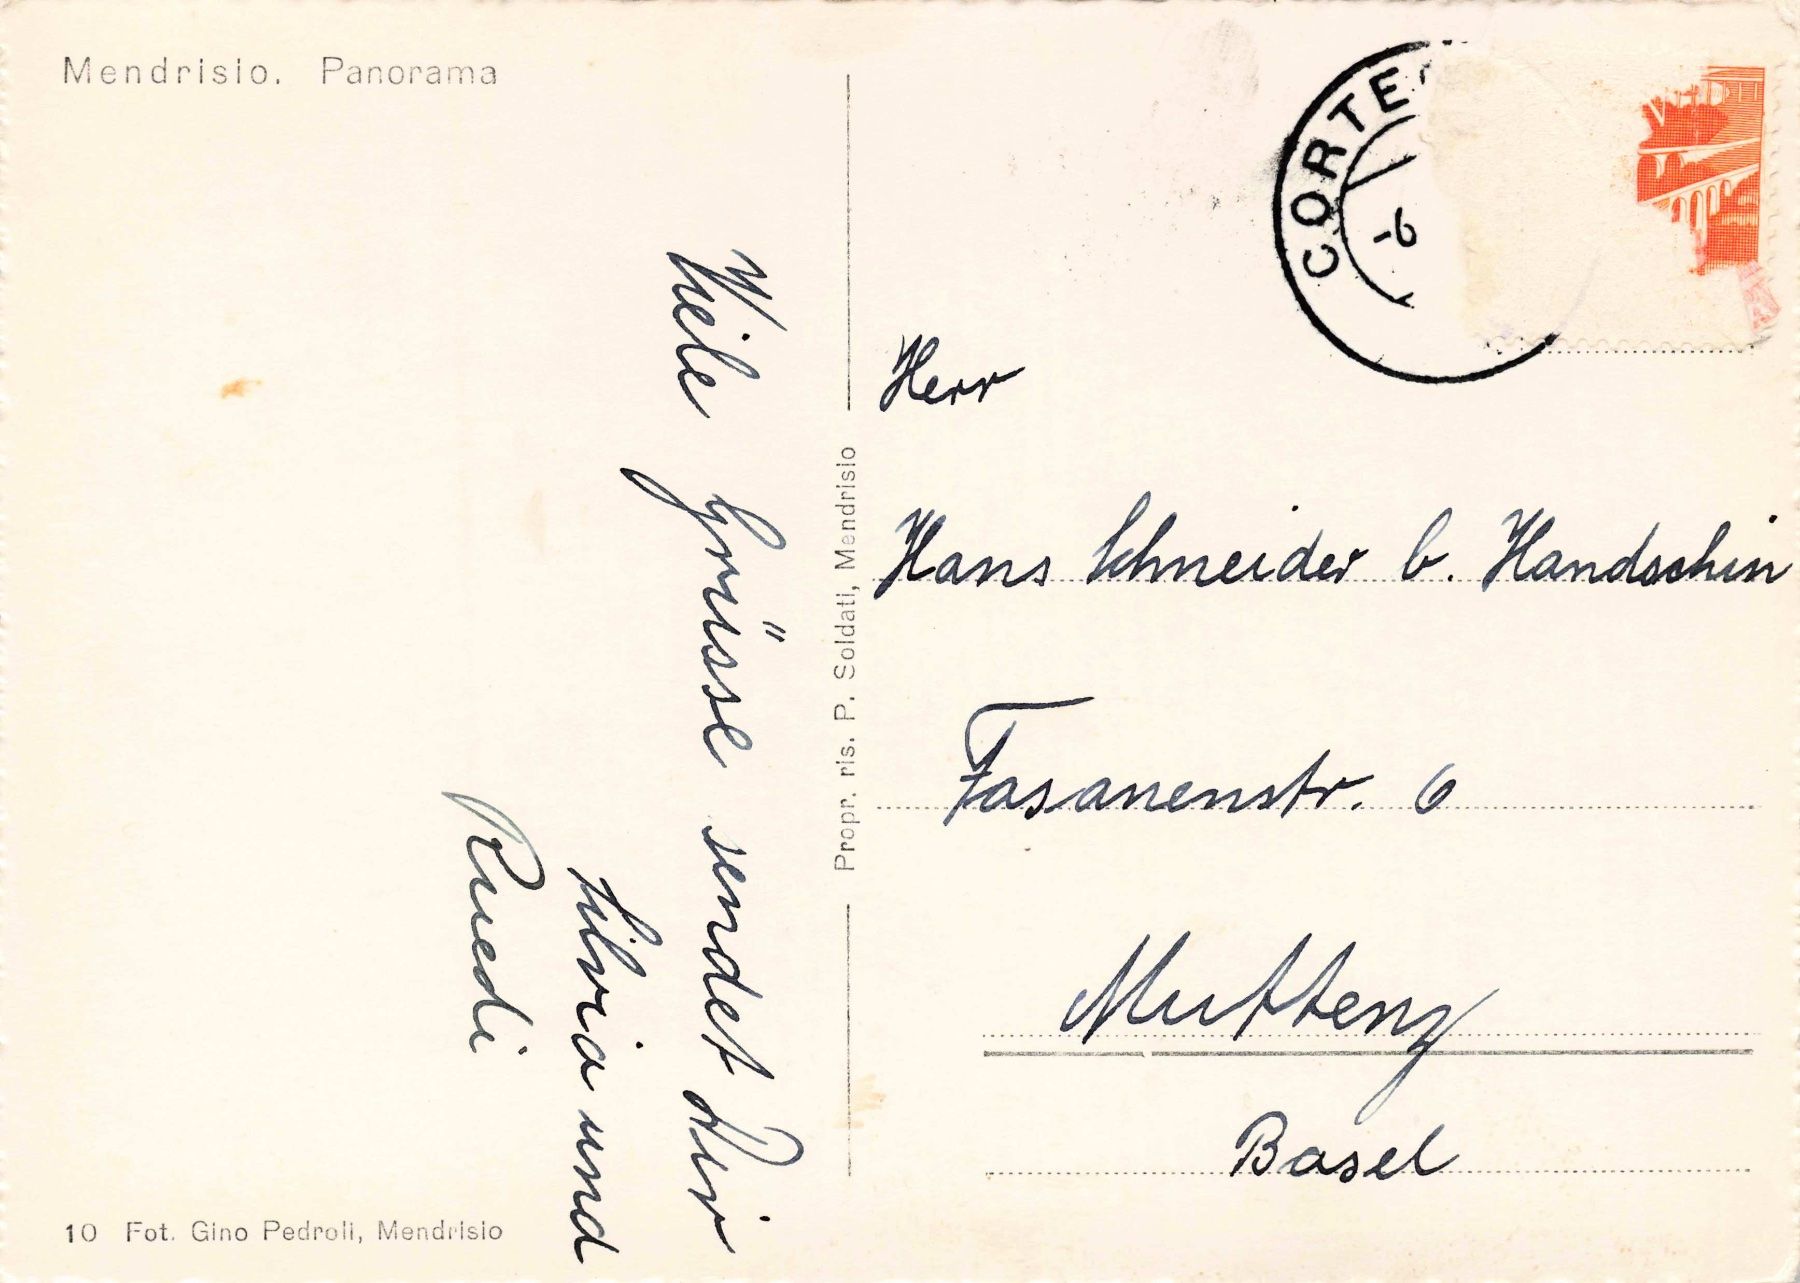 Mendrisio. Panorama
Viele Grüsse sendet Dir
Silvia und
Ruedi
10 Fot. Gino Pedroli, Mendrisio
Propr. ris. P. Soldati, Mendrisio
CORTE
-6
Herr
Hans Schneider b. Handschin
Fasanenstr. 6
Muttenz
Basel